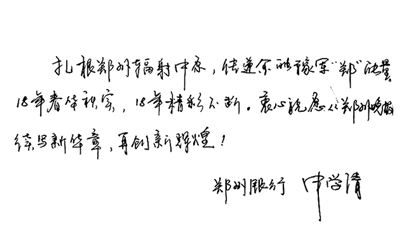 扎根郑州辐射中原，传递金融豫军“郑”能量
18年春华秋实，18年精彩不断。衷心祝愿《郑州晚报
续写新华章，再创新辉煌！
郑州银行 申学清